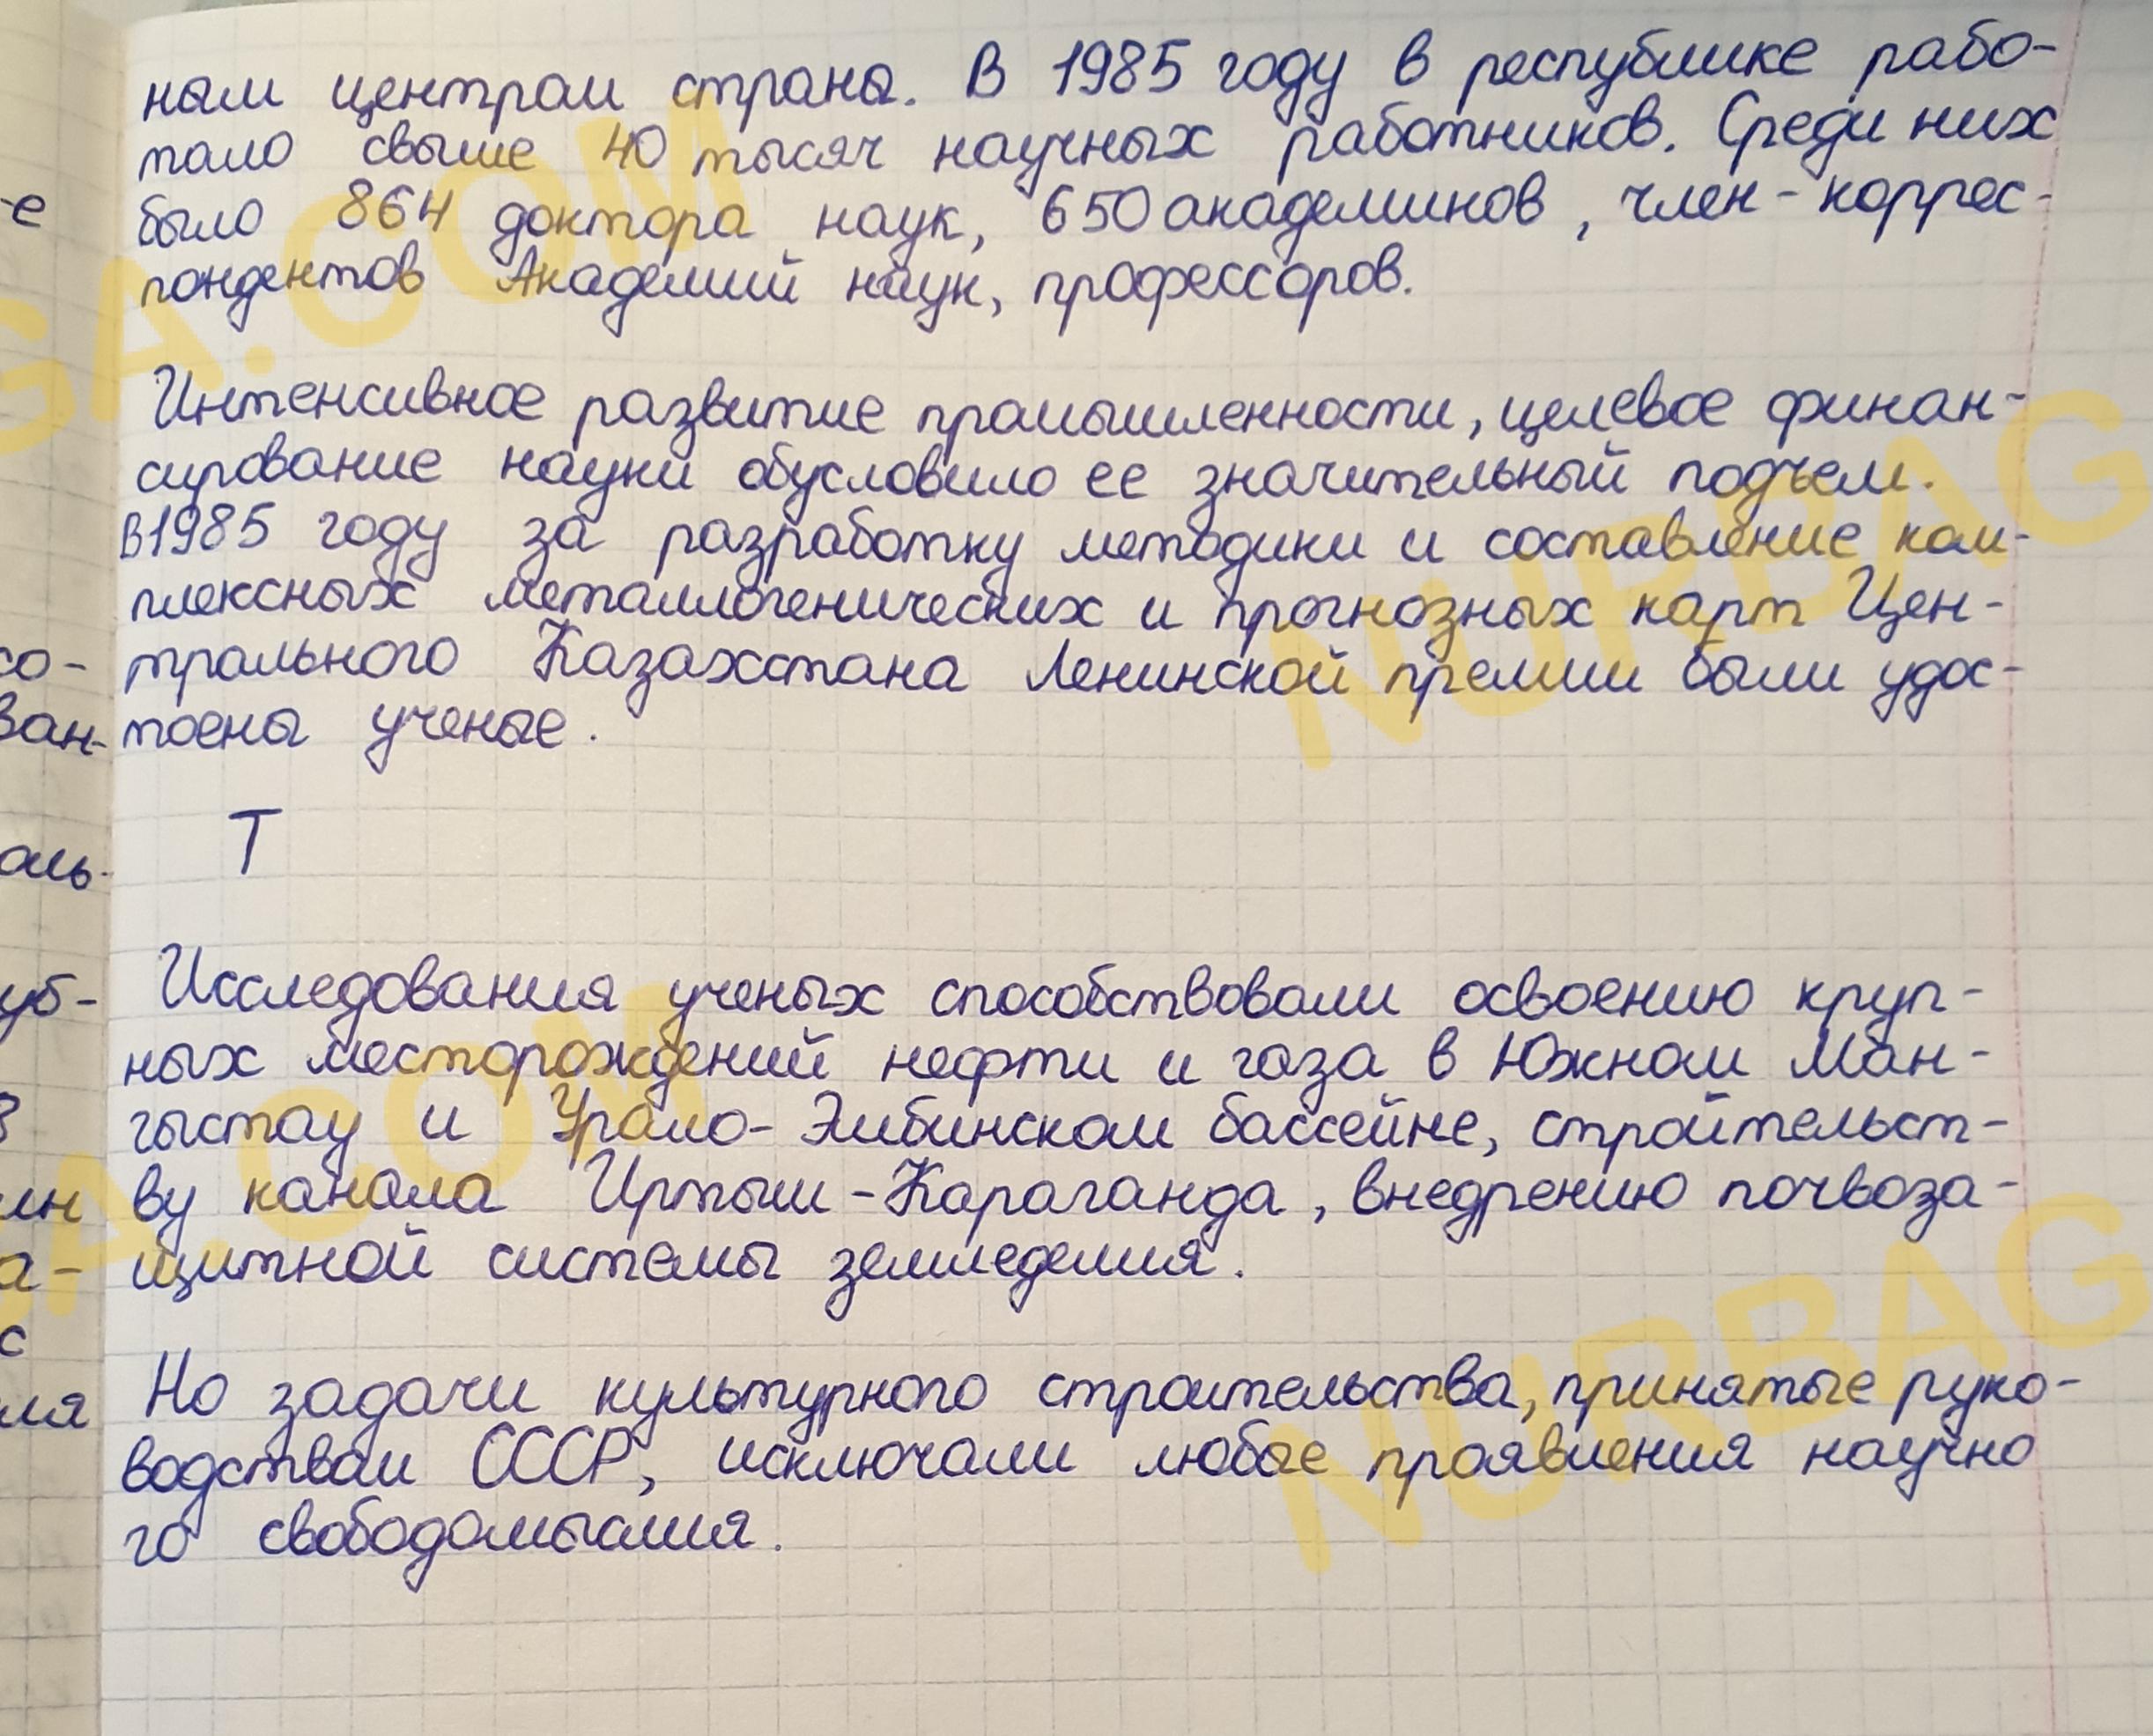 ным центром страны. В 1985 году в республике рабо-
тало свыше 40 тысяч научных работников. Среди них
было 864 доктора наук, 650 академиков, член-коррес-
пондентов Академий наук, профессоров.
Интенсивное развитие промышленности, целевое финан-
сирование науки обусловило ее значительный подъем.
В 1985 году за разработку методики и составление ком-
плексных металлогенических и прогнозных карт Цен-
трального Казахстана Ленинской премии были удос-
тоены ученые.
Т
Исследования ученых способствовали освоению круп-
ных месторождений нефти и газа в Южном Ман-
гыстау и Урало-Эмбинском бассейне, строительст-
ву канала Иртыш-Караганда, внедрению почвоза-
щитной системы земледелия.
Но задачи культурного строительства, принятые руко-
водством СССР, исключали любые проявления научно
го свободомыслия.
-е
со-
ван-
аль-
уб-
а-
с
ля
GA.COM
NURBAG
A.COM
NURBAG